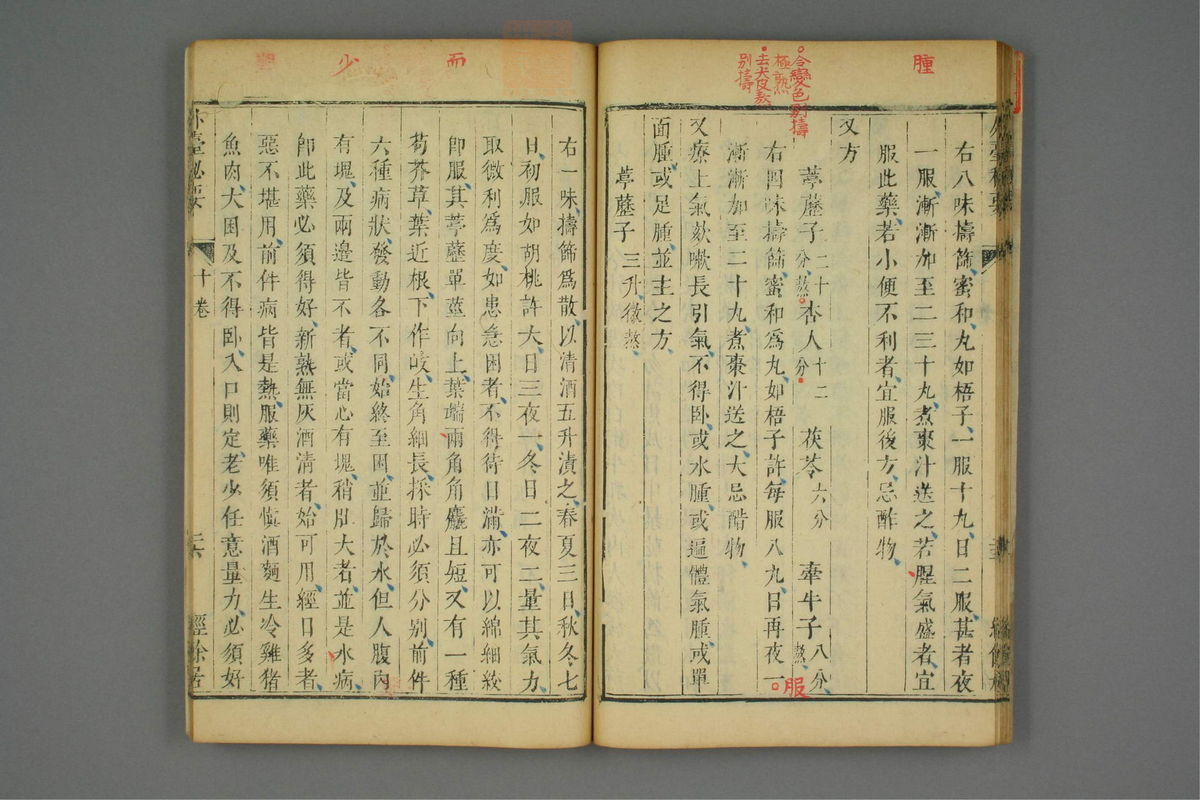 腫
右八味擣篩蜜和丸如梧子一服十九日二服甚者夜
一服漸漸加至二三十丸煮棗汁送之若腥氣盛者宜
服此藥若小便不利者宜服後方忌酢物
又方
葶藶子二十分熬杏人十二分茯苓六分牽牛子八分熬
右四味擣篩蜜和爲丸如梧子許每服八九日再夜一
漸漸加至二十丸煮棗汁送之大忌醋物
又療上氣欬嗽長引氣不得卧或水腫或遍體氣腫或單
面腫或足腫並主之方
葶藶子三升微熬
令變色別擣
極熟
去尖皮熬
別擣
服
而
少
右一味擣篩爲散以清酒五升漬之春夏三日秋冬七
日初服如胡桃許大日三夜一冬日二夜二量其氣力
取微利爲度如患急困者不得待日滿亦可以綿細絞
卽服其葶藶單莖向上葉端兩角角麄且短又有一種
苟芥草葉近根下作岐生角細長採時必須分別前件
六種病狀發動各不同始終至困並歸於水但人腹內
有塊及兩邊皆不者或當心有塊稍肚大者並是水病
卽此藥必須得好新熟無灰酒清者始可用經日多者
惡不堪用前件病皆是熱服藥唯須愼酒麵生冷雞猪
魚肉大困及不得卧入口則定老少任意量力必須好
外臺秘要
十卷
二六
經餘居